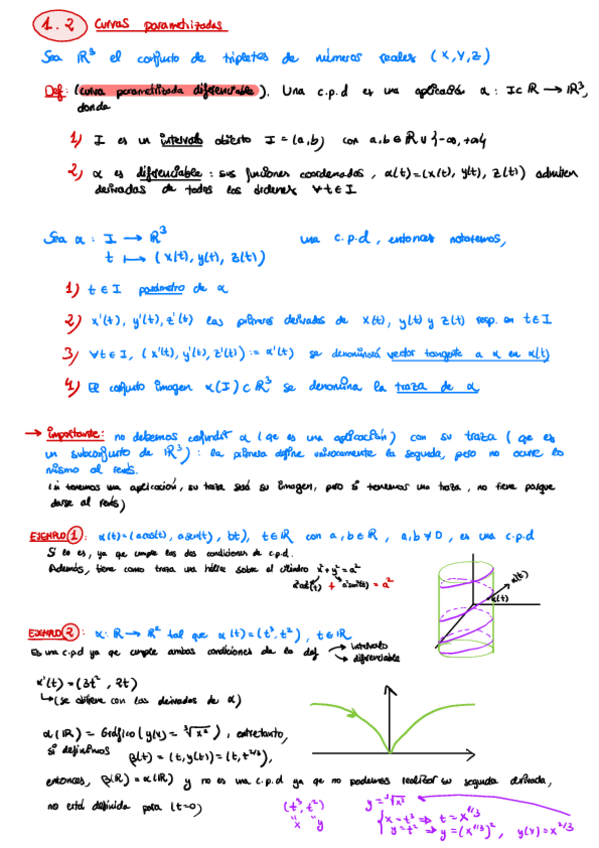 1.2 Curvas parametrizadas
Sea ℝ³ el conjunto de tripletes de números reales (x,y,z)
Def: (curva parametrizada diferenciable). Una c.p.d es una aplicación α: I⊂ℝ → ℝ³,
donde
1) I es un intervalo abierto I = (a,b) con a,b ∈ ℝ ∪ {-∞, +∞}
2) α es diferenciable: sus funciones coordenadas, α(t)=(x(t), y(t), z(t)) admiten
derivadas de todos los órdenes ∀t∈I
Sea α: I → ℝ³ una c.p.d, entonces notaremos,
t ↦ (x(t), y(t), z(t))
1) t ∈ I parámetro de α
2) x'(t), y'(t), z'(t) las primeras derivadas de x(t), y(t) y z(t) resp. en t∈I
3) ∀t∈I, (x'(t), y'(t), z'(t)) := α'(t) se denominará vector tangente a α en α(t)
4) El conjunto imagen α(I) ⊂ ℝ³ se denomina la traza de α
→ importante: no debemos confundir α (que es una aplicación) con su traza (que es
un subconjunto de ℝ³): la primera define unívocamente la segunda, pero no ocurre lo
mismo al revés.
(si tenemos una aplicación, su traza será su imagen, pero si tenemos una traza, no tiene porque
darse al revés)
EJEMPLO 1: α(t)=(a cos(t), a sen(t), bt), t∈ℝ con a,b∈ℝ, a,b≠0, es una c.p.d
Si lo es, ya que cumple las dos condiciones de c.p.d.
Además, tiene como traza una hélice sobre el cilindro x²+y²=a²
a²cos²(t) + a²sin²(t) = a²
α'(t)
α(t)
EJEMPLO 2: α: ℝ → ℝ² tal que α(t)=(t³, t²), t∈ℝ
Es una c.p.d ya que cumple ambas condiciones de la def → intervalo
→ diferenciable
α'(t)=(3t², 2t)
↳(se obtiene con las derivadas de α)
α(ℝ) = Gráfico(y(x) = ³√x²), entretanto,
si definimos
β(t) = (t, y(t)) = (t, t^2/3),
entonces, β(ℝ) = α(ℝ) y no es una c.p.d ya que no podemos realizar su segunda derivada,
no está definida para (t=0)
(t³, t²)
" "
x y
y = ³√x²
{x = t³ ⇒ t = x^1/3
y = t² ⇒ y = (x^1/3)², y(x) = x^2/3